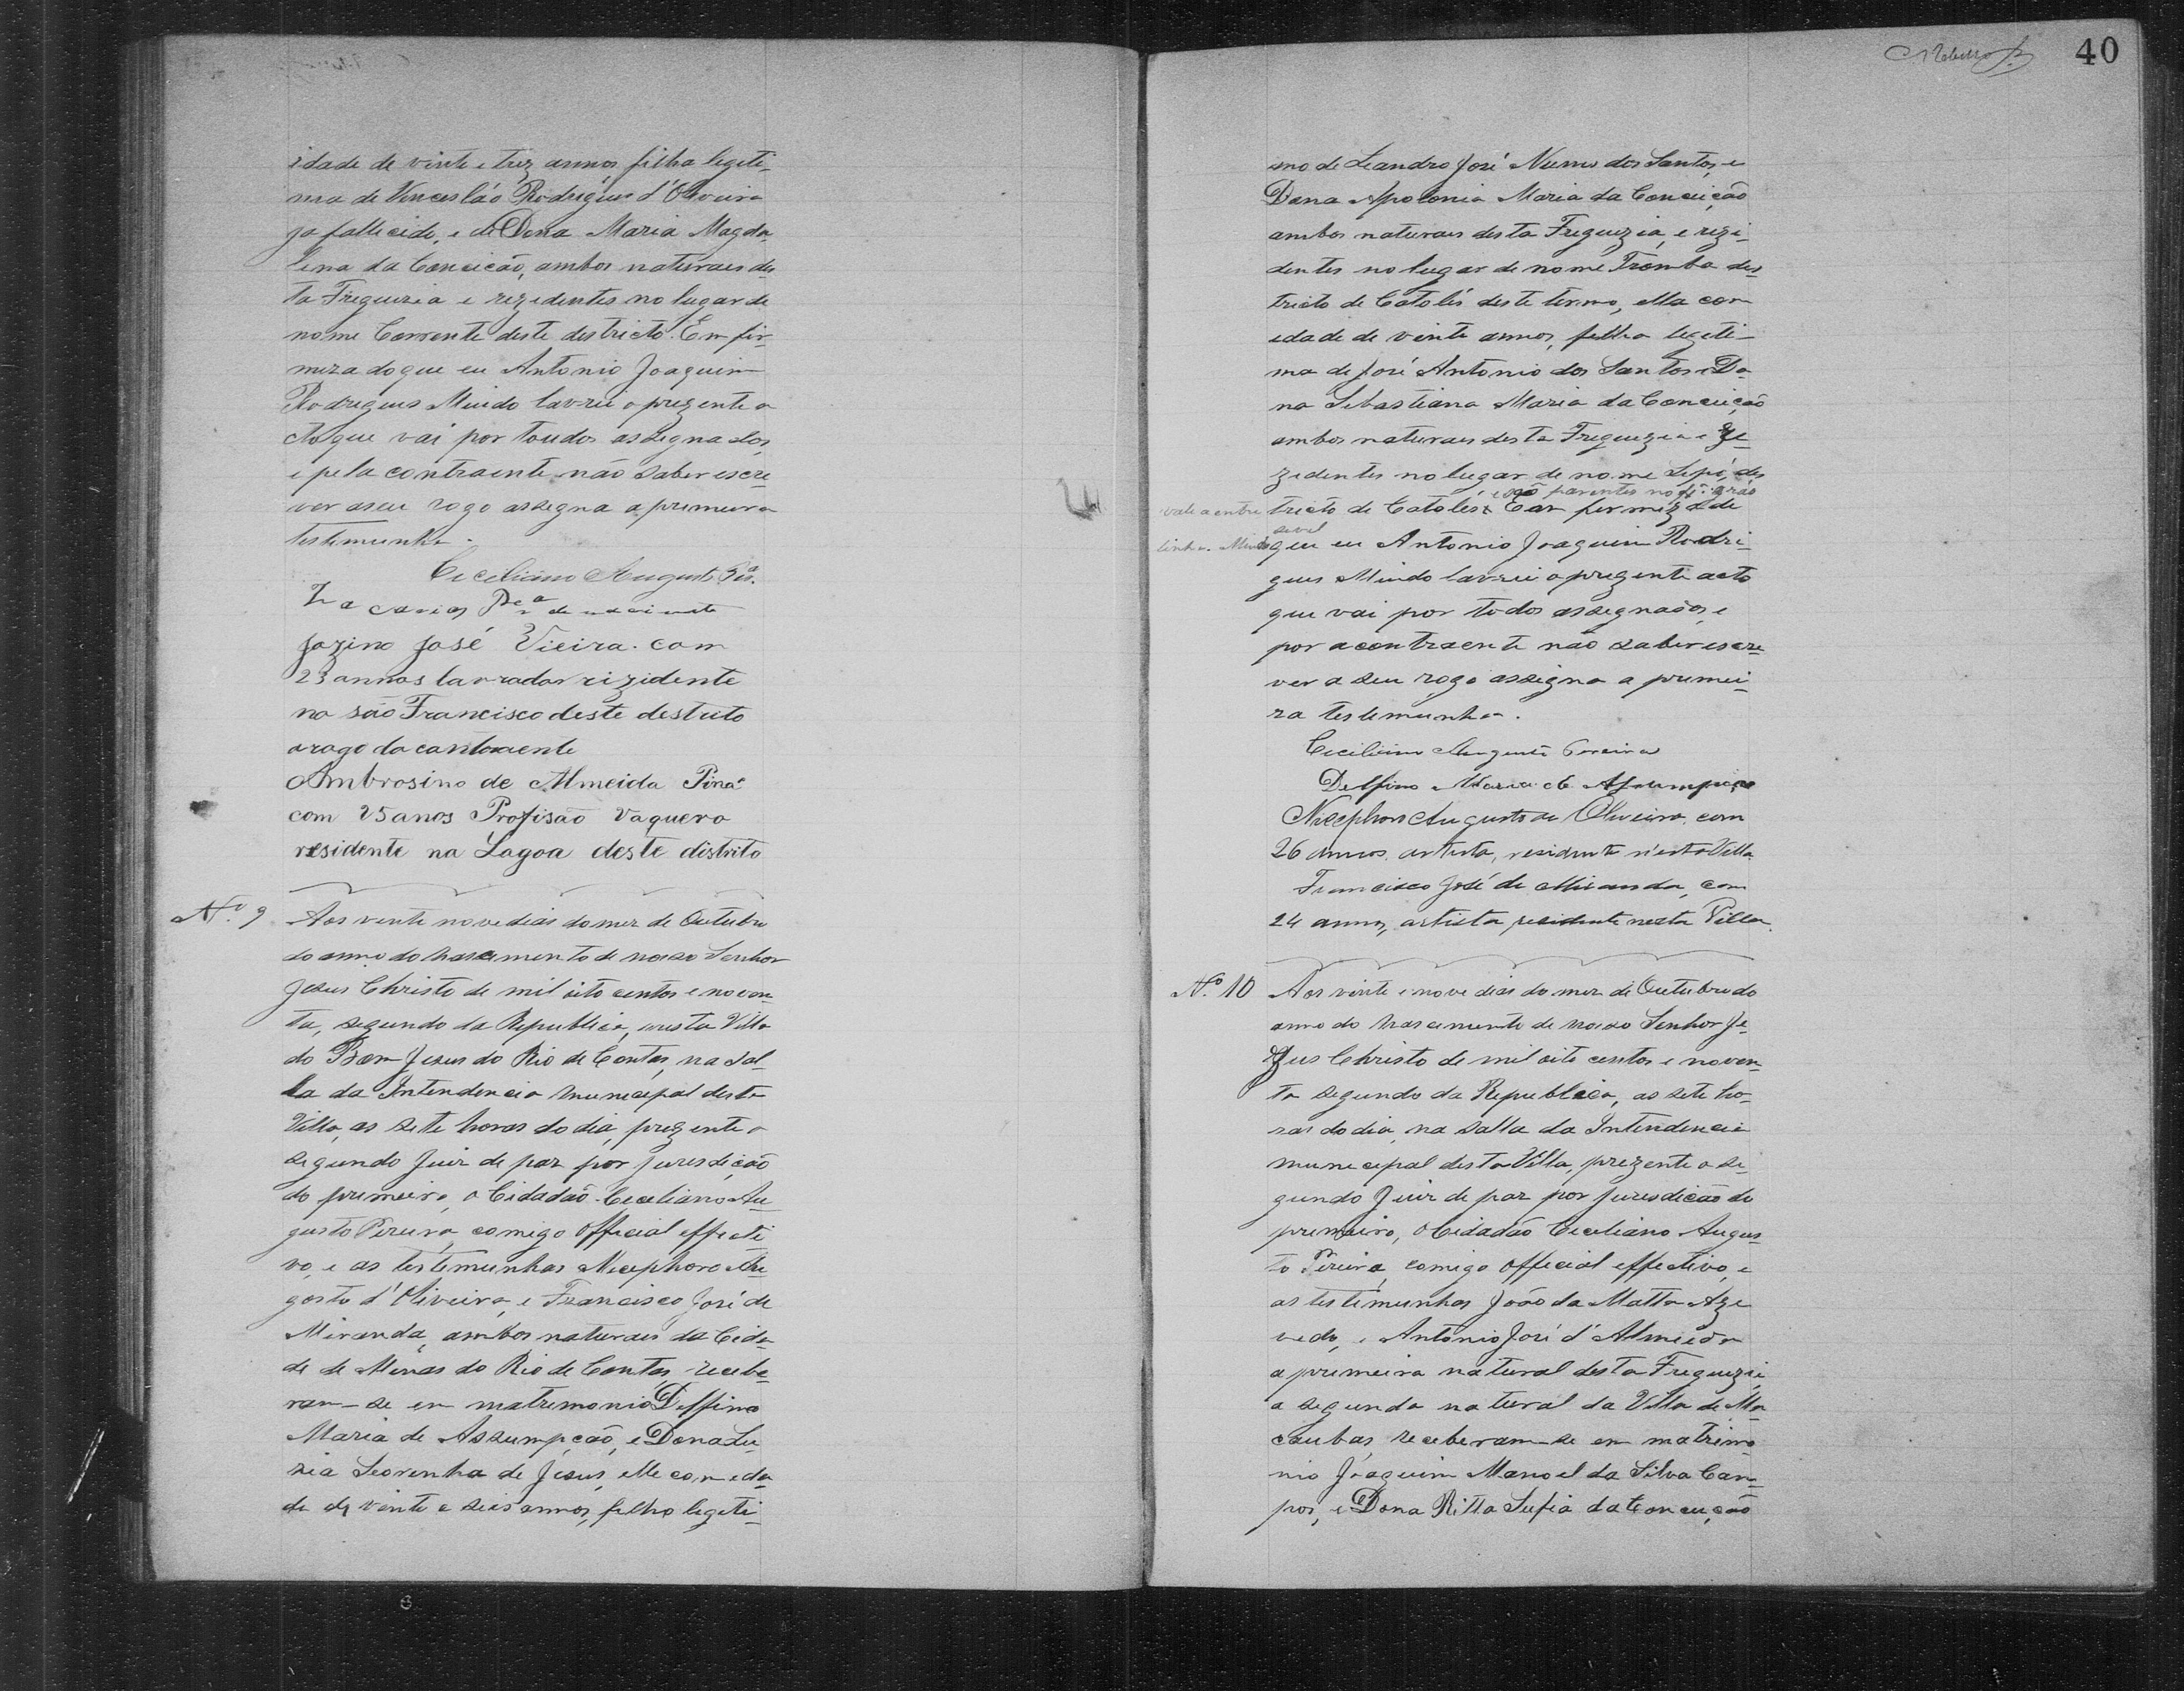 idade de vinte e trez annos filha legeti-
ma de Venceslão Rodrigues d'Oliveira
ja fallecido, e de Dona Maria Magda-
lena da Conceicão, ambos naturaes des-
ta Freguezia e rezedentes no lugar de
nome Corrente deste destricto. Em fir-
meza do que eu Antonio Joaquim
Rodregues Mindo lavrei o prezente a
cto que vai por toudos assegnados,
e pela contraente não saber escre
ver a seu rogo assegna a premeira
testemunha.
Ceciliano Augusto Per.ª
Zacarias Per.ª de nacimento
Jozino José Vieira. com
23 annos lavrador rizidente
no são Francisco deste destrito
arogo da contraente
Ambrosino de Almeida Pina
com 25 anos Profisão Vaquero
residente na Lagoa deste distrito
N.º 9 Aos vente nove dias do mez de Outubro
do anno do nascemento de nosso Senhor
Jesus Christo de mil oito centos e noven-
ta, segundo da Republica, nesta Villa
do Bom Jesus do Rio de Contas, na sal-
la da Intendencia Municepal desta
Villa, as sete horas do dia, prezente o
segundo Juiz de paz por juresdição
do premeiro, o Cidadão Ceceliano Au-
gusto Pereira, comigo official effecti
vo, e as testemunhas Nicephoro Au
gosto d'Oliveira, e Francisco José de
Miranda, ambos naturais da Cida-
de de Minas do Rio de Contas, recebe-
ram-se em matremonio Delfino
Maria de Assumpção, e Dona Lu-
zia Leorenha de Jesus, elle com eda-
de de vente e seis annos, filho legeti-
40
mo de Leandro José Nunes dos Santos, e
Dona Apolonia Maria da Conceição
ambos naturaes desta Freguezia, e rezi-
dentes no lugar de nome Tromba des-
tricto de Catolés deste termo, ella com
edade de vente annos, filha legeti-
ma de José Antonio dos Santos e Do-
na Sebastiana Maria da Conceição
ambos naturaes desta Freguezia e Re-
zedentes no lugar de nome Sepó, des
e são parentes no 4º gráo
vale a entre tricto de Catolés. Em fermeza de
sevel
linha. Mindo que eu Antonio Joaquim Rodri-
gues Mindo lavrei o prezente acto
que vai por todos assegnados, e
por a contraente não saber escre-
ver a seu rogo assigna a premei-
ra testemunha.
Ceciliano Augusto Pereira
Delfino Maria de Assumpção
Nicephoro Augusto de Oliveira, com
26 annos, artista, residente n'esta Villa
Francisco José de Miranda, com
24 annos, artista, residente nesta Villa.
N.º 10 Aos vinte e nove dias do mez de Outubro do
anno do nascemento de nosso Senhor Je-
zus Christo de mil oito centos e noven-
ta segundo da Republica, as sete ho-
ras do dia, na salla da Intendencia
municepal desta Villa, prezente o se-
gundo Juiz de paz por juresdicão do
premeiro, o Cidadão Ceceliano Augus-
to Pereira, comigo official effectivo, e
as testemunhas João da Matta Aze
vedo, e Antonio José d'Almeida
a premeira natural desta Freguezia,
a segunda natural da Villa de Ma
caubas, receberam-se em matrimo-
nio Joaquim Manoel da Silva Cam-
pos, e Dona Ritta Sufia da Conceição